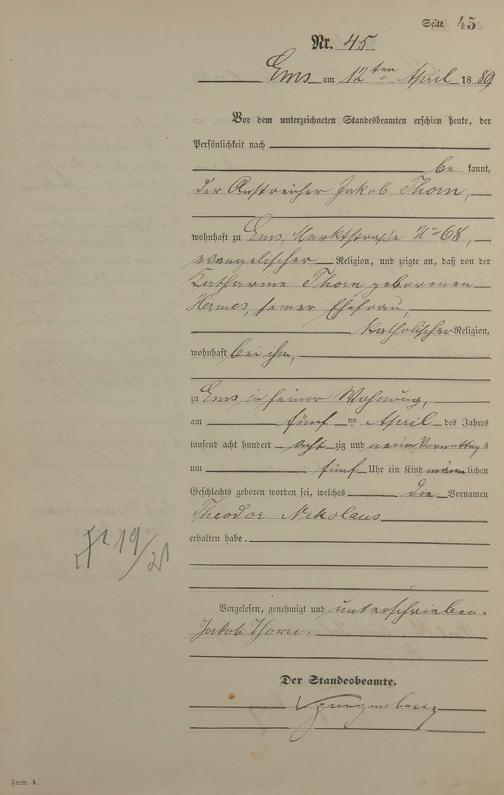 Seite 45
Nr. 45
Ems am 12ten April 1889
Vor dem unterzeichneten Standesbeamten erschien heute, der
Persönlichkeit nach
bekannt,
der Anstreicher Jakob Thorn,
wohnhaft zu Ems, Marktstraße No 68,
evangelischer Religion, und zeigte an, daß von der
Katharine Thorn geborenen
Hermes, seiner Ehefrau,
katholischer Religion,
wohnhaft bei ihm,
zu Ems in seiner Wohnung,
am fünften April des Jahres
tausend acht hundert achtzig und neun Vormittags
um fünf Uhr ein Kind männlichen
Geschlechts geboren worden sei, welches die Vornamen
Theodor Nikolaus
erhalten habe.
19/21
Vorgelesen, genehmigt und unterschrieben.
Jakob Thorn.
Der Standesbeamte.
Form. A.